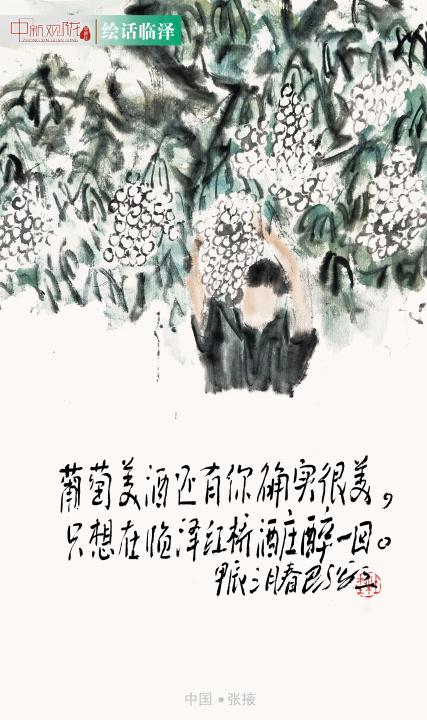 中新观陇
ZHONG XIN GUAN LONG
绘话临泽
葡萄美酒还有你确实很美，
只想在临泽红桥酒庄醉一回。
甲辰之月春
中国 • 张掖